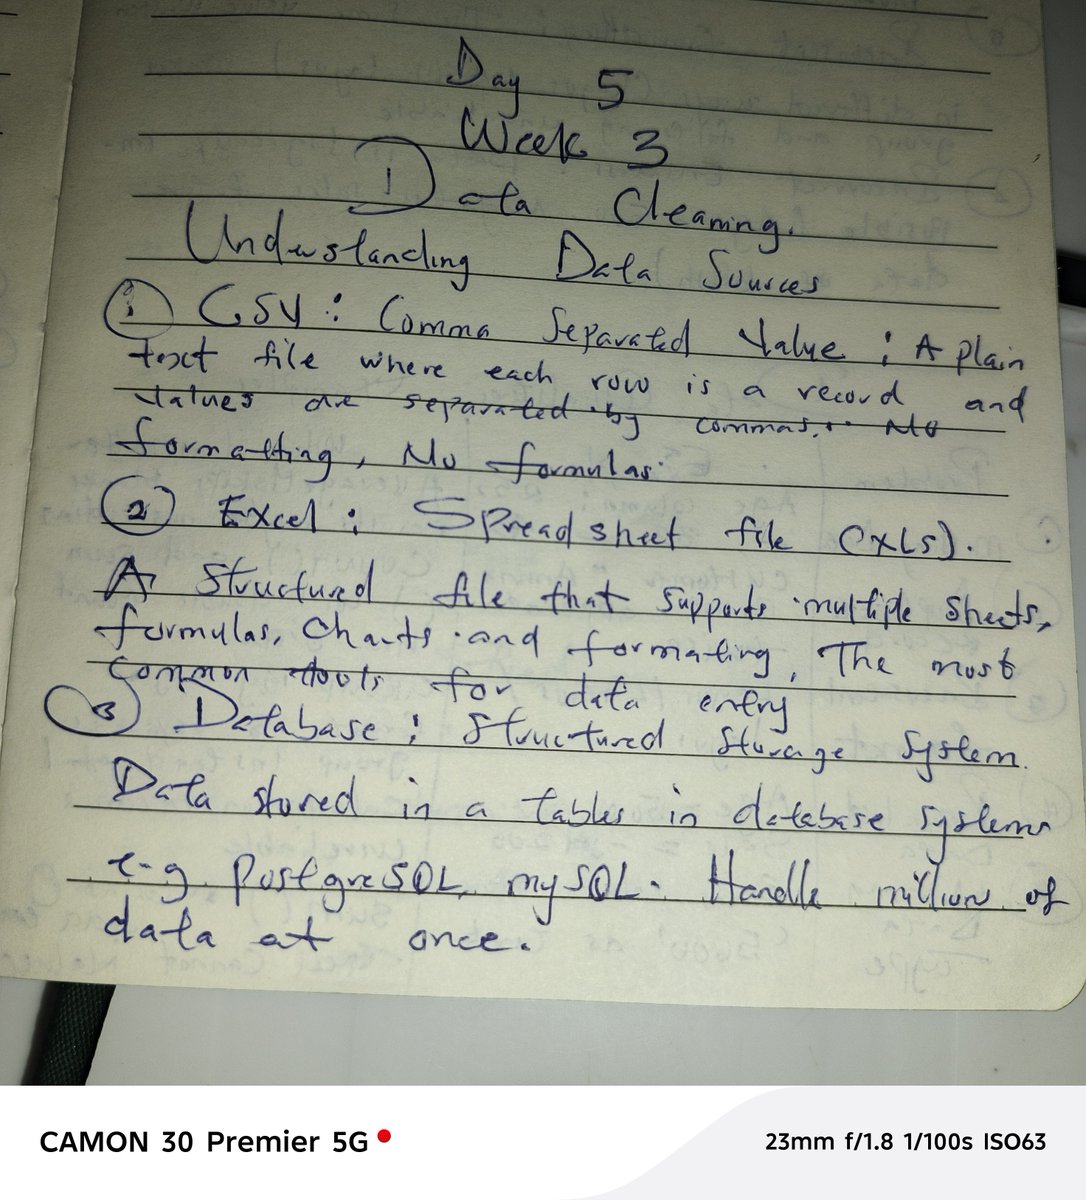 Day 5
Week 3
Data Cleaning.
Understanding Data Sources
1 CSV : Comma Separated Value : A plain
text file where each row is a record and
values are separated by commas. No
formatting, No formulas.
2 Excel : Spreadsheet file (xls).
A structured file that supports multiple sheets,
formulas, charts and formating, The most
common tools for data entry
3 Database : Structured Storage System.
Data stored in a tables in database systems
e-g. PostgreSQL, mySQL. Handle million of
data at once.
CAMON 30 Premier 5G
23mm f/1.8 1/100s ISO63